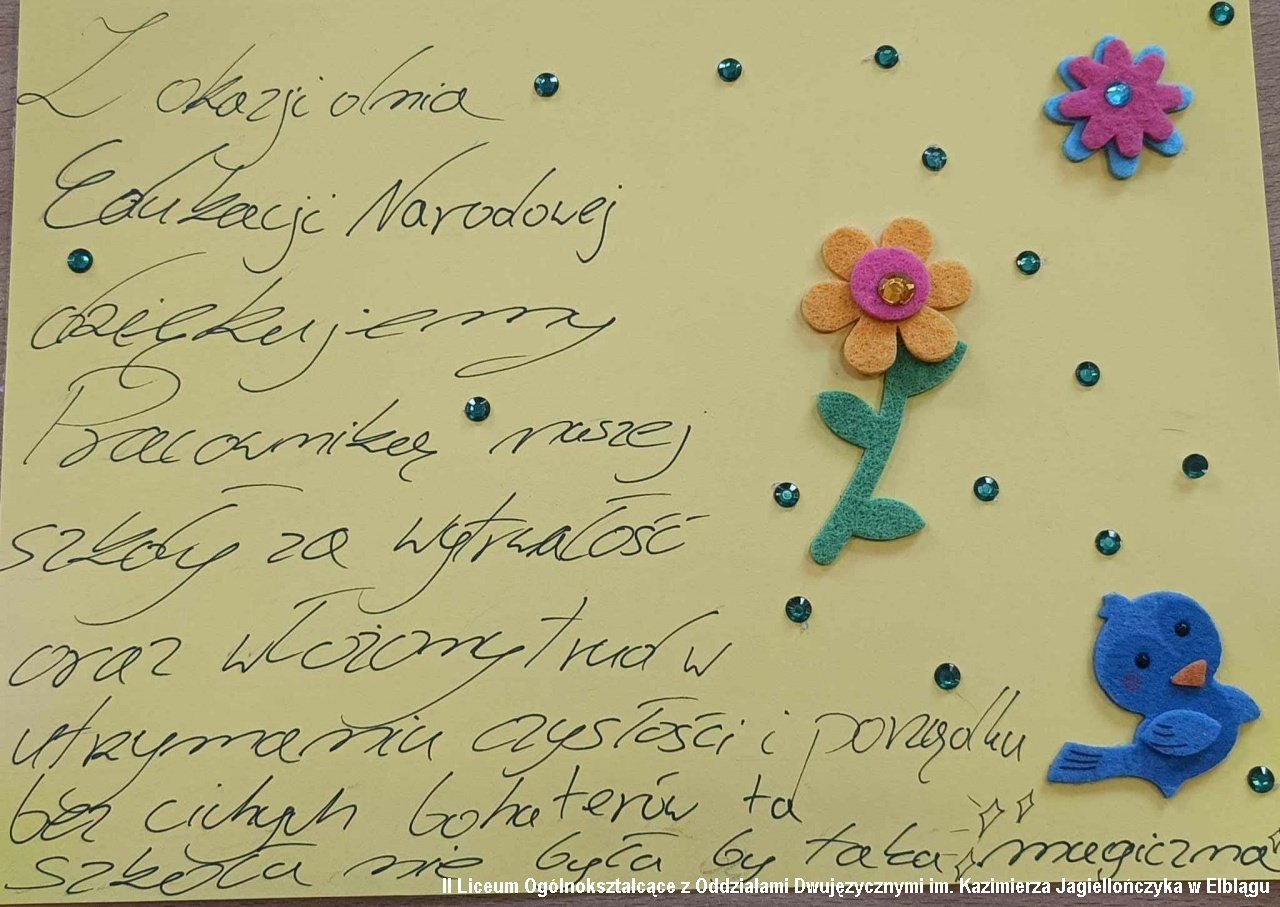 Z okazji dnia
Edukacji Narodowej
dziękujemy
Pracowniką naszej
szkoły za wytrwałość
oraz włożony trud w
utrzymaniu czystości i porządku
bez cichych bohaterów ta
szkoła nie była by taka magiczna
II Liceum Ogólnokształcące z Oddziałami Dwujęzycznymi im. Kazimierza Jagiellończyka w Elblągu